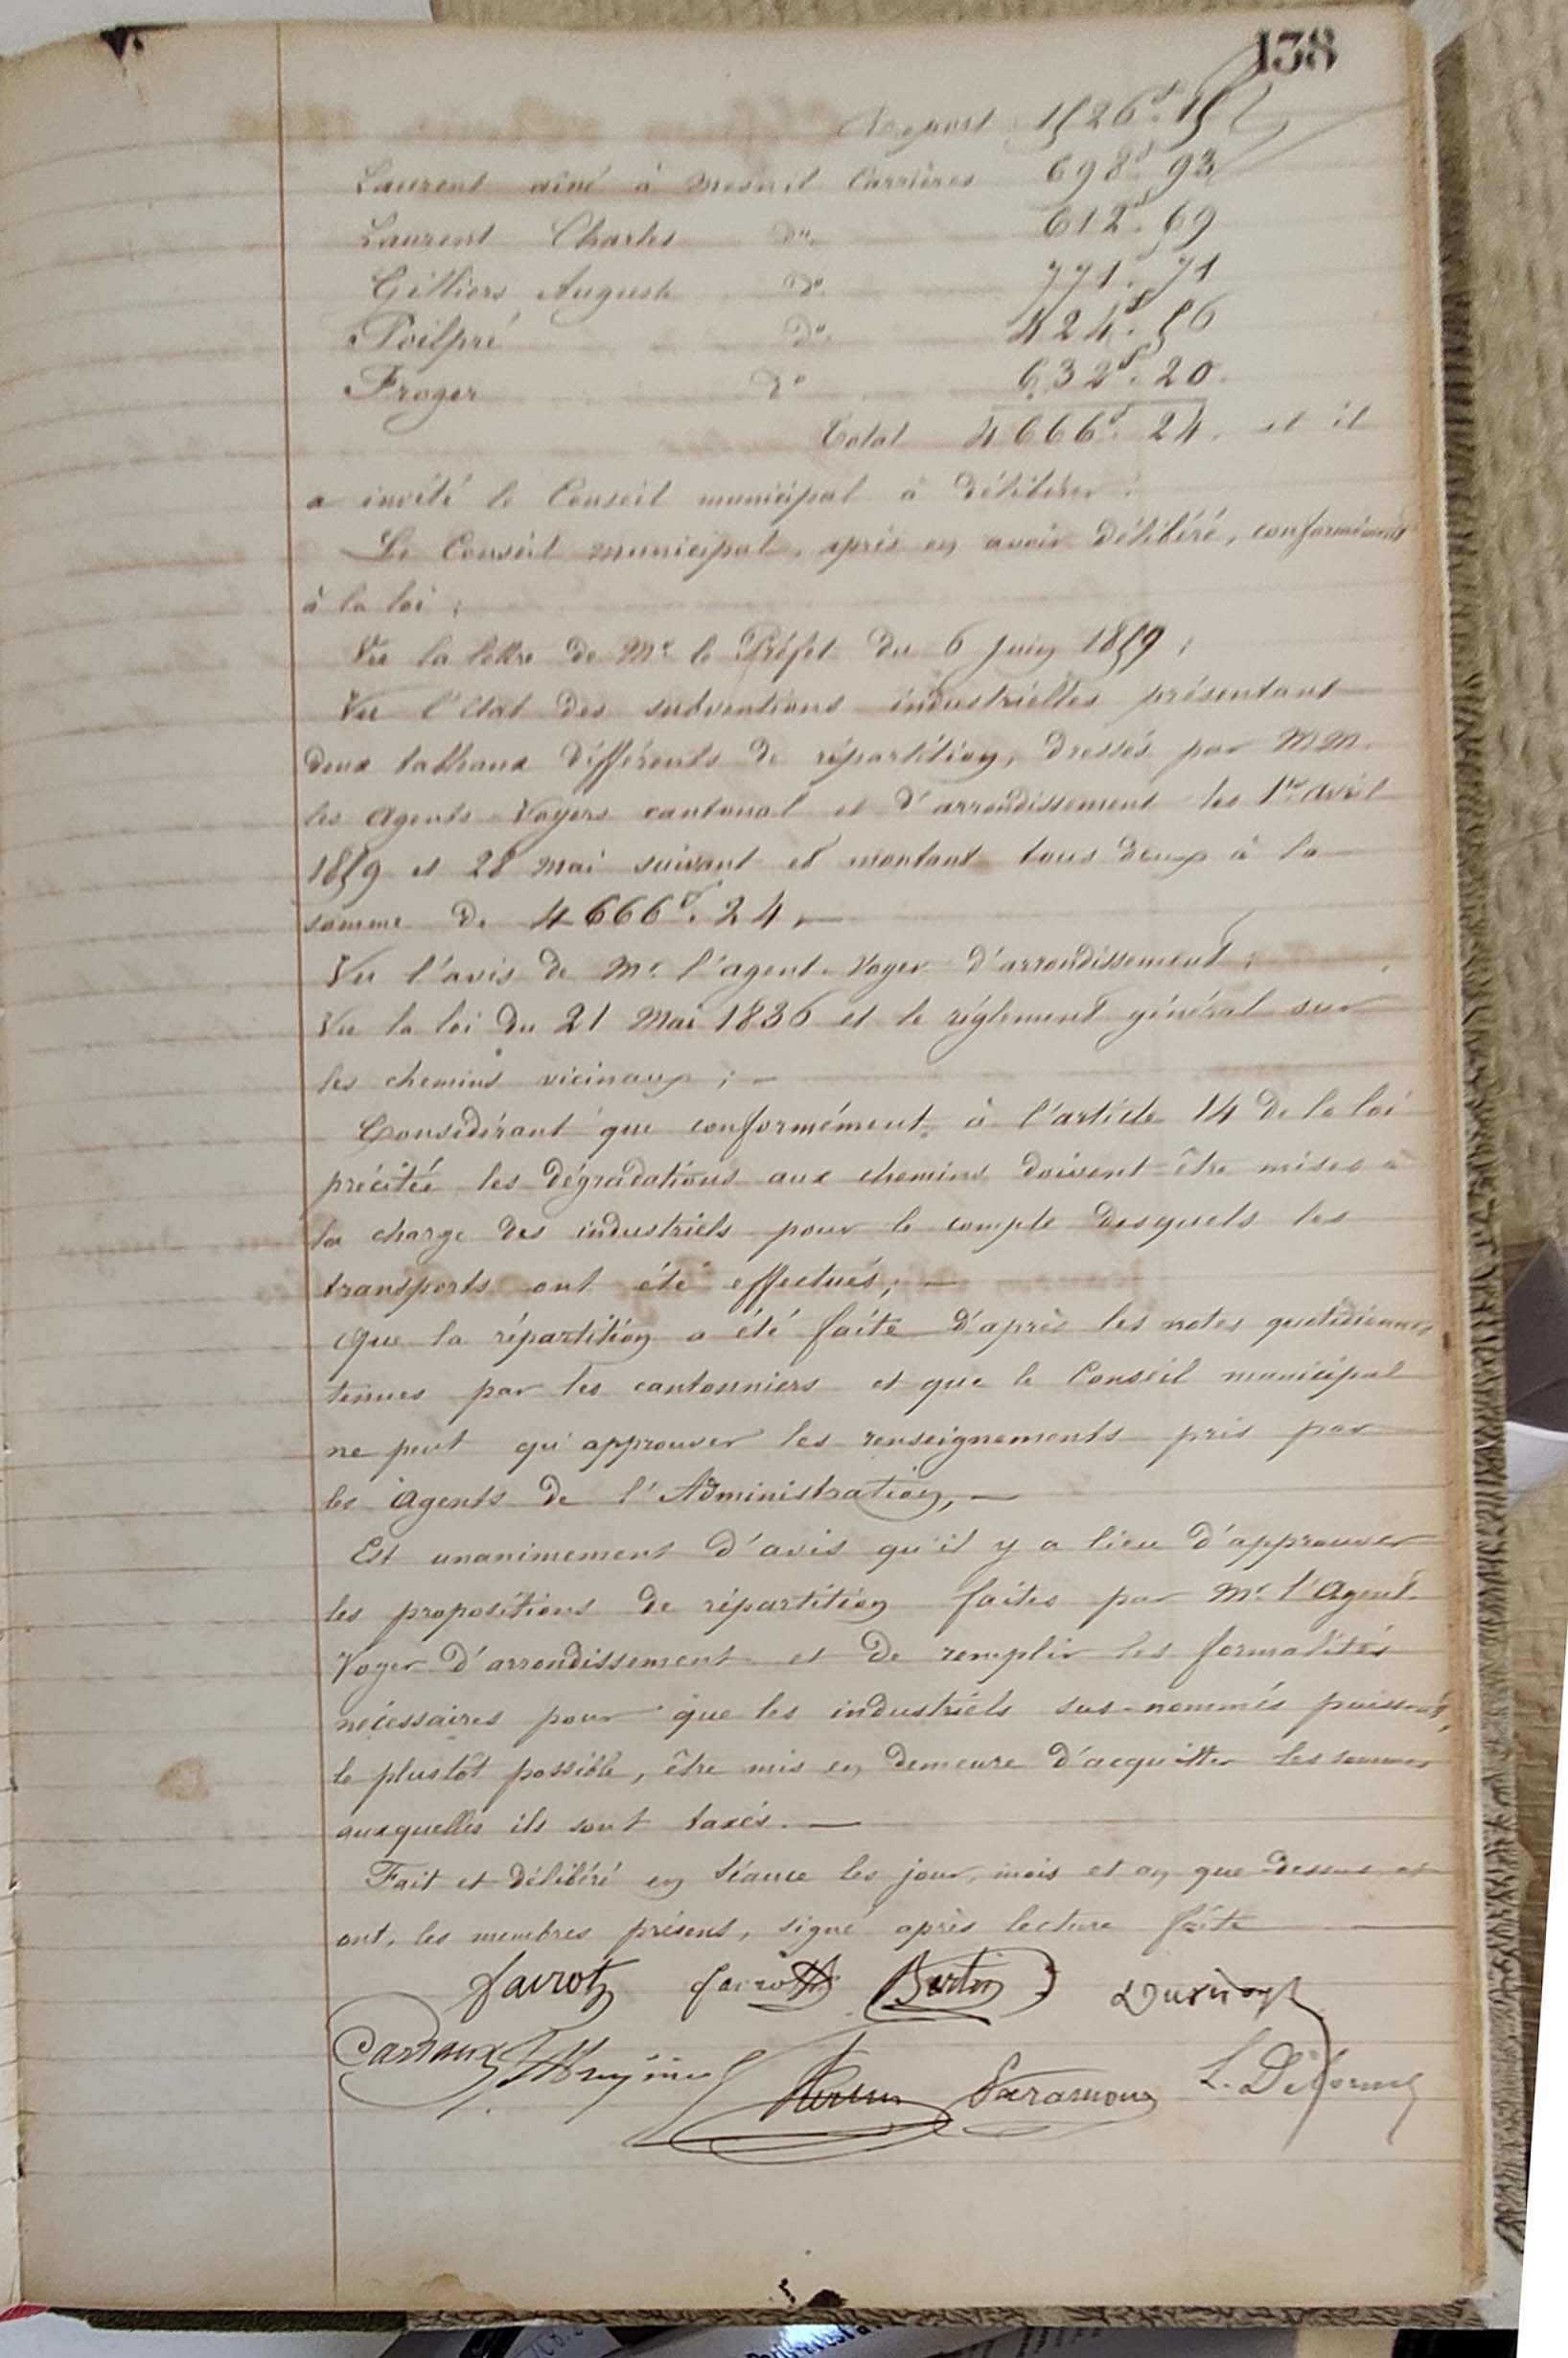 138
Report 1526f. 15
Laurent aîné à Mesnil Carrières 698f. 93
Laurent Charles do. 612f. 69
Gilliers Auguste do. 771. 71
Poilpré do. 424f. 56
Froger do 632f. 20.
Total 4666f. 24. et il
a invité le Conseil municipal à délibérer.
Le Conseil municipal, après en avoir délibéré, conformément
à la loi ;
Vu la lettre de Mr le Préfet du 6 Juin 1859 ;
Vu l'Etat des subventions industrielles présentant
deux tableaux différents de répartition, dressés par MM.
les Agents-Voyers cantonal et d'arrondissement les 1er avril
1859 et 28 Mai suivant et montant tous deux à la
somme de 4666f. 24. —
Vu l'avis de Mr. l'agent-Voyer d'arrondissement ;
Vu la loi du 21 Mai 1836 et le réglement général sur
les chemins vicinaux ; —
Considérant que conformément à l'article 14 de la loi
précitée les dégradations aux chemins doivent être mises à
la charge des industriels pour le compte desquels les
transports ont été effectués ; —
Que la répartition a été faite d'après les notes quotidiennes
tenues par les cantonniers et que le Conseil municipal
ne peut qu'approuver les renseignements pris par
les Agents de l'Administration, —
Est unanimement d'avis qu'il y a lieu d'approuver
les propositions de répartition faites par Mr. l'Agent
Voyer d'arrondissement et de remplir les formalités
nécessaires pour que les industriels sus-nommés puissent,
le plustôt possible, être mis en demeure d'acquitter les sommes
auxquelles ils sont taxés. —
Fait et délibéré en Séance les jour, mois et an que dessus et
ont, les membres présens, signé après lecture faite
Favrot Bertin